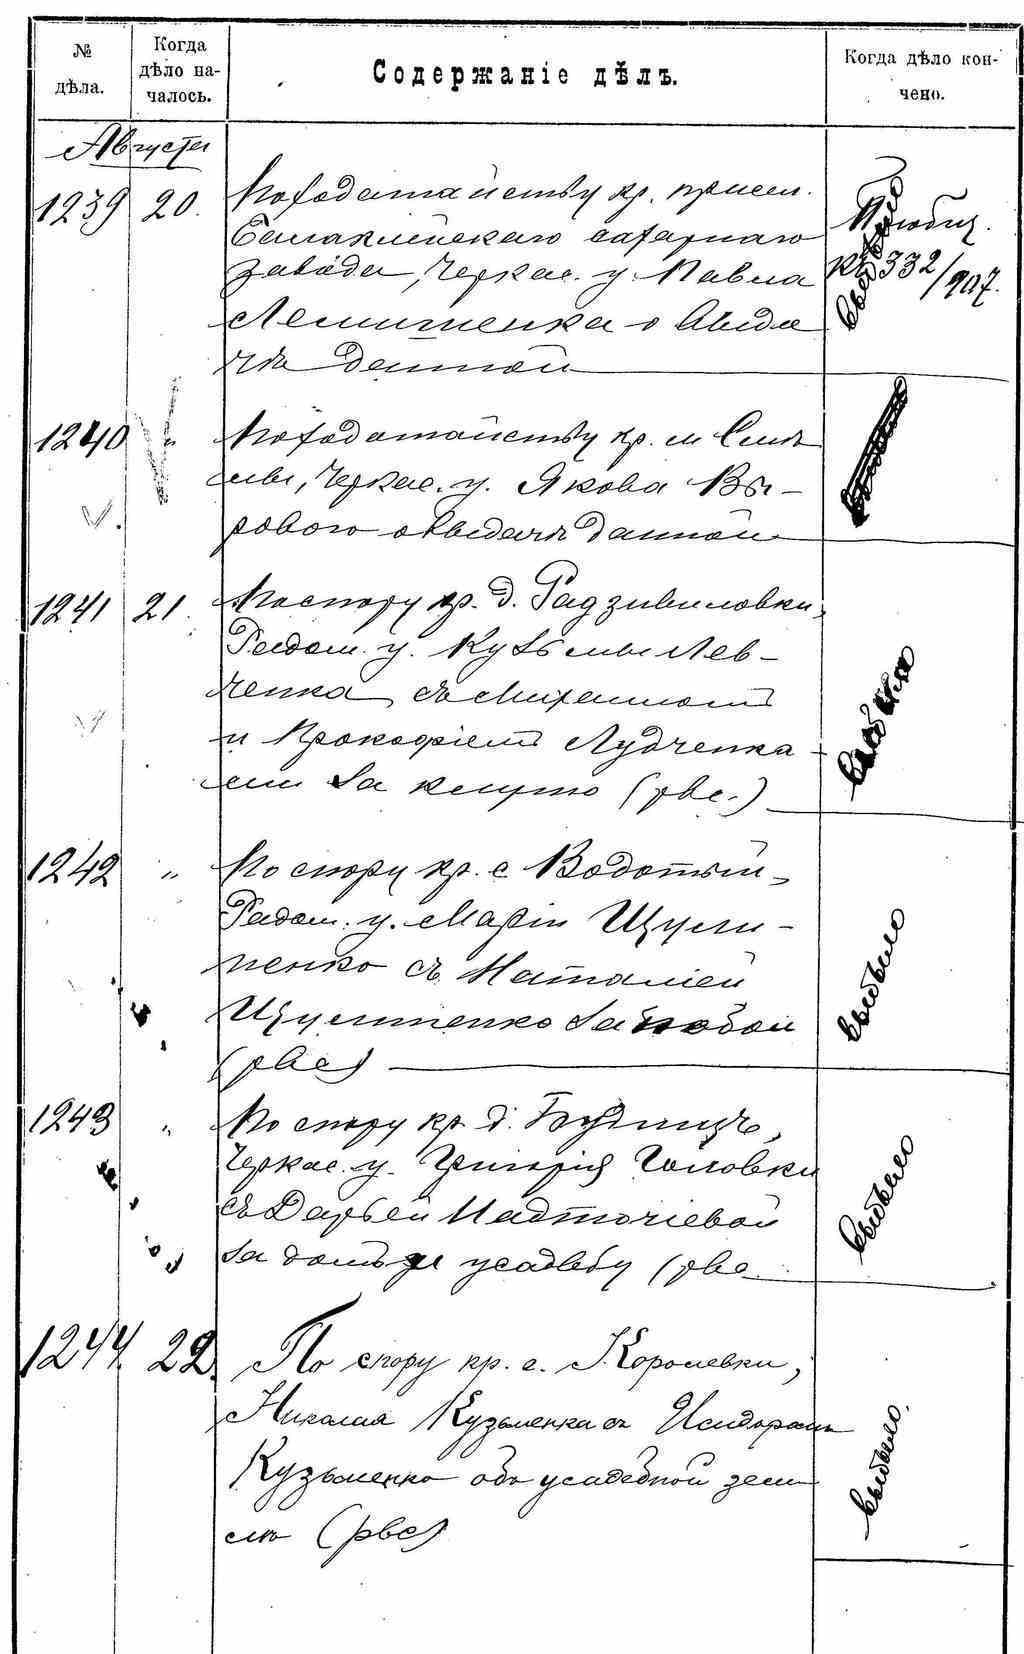 № дѣла.
Когда дѣло на-
чалось.
Содержаніе дѣлъ.
Когда дѣло кон-
чено.
Августа
1239 20. По ходатайству кр. присел.
Балаклейскаго сахарнаго
завода, Черкас. у. Павла
о выда
чѣ данной
332/907.
1240 " По ходатайству кр. м. Смѣ
лы, Черкас. у. Якова Вы-
рового о выдачѣ данной
1241 21. По спору кр. д. Радзивиловки,
Радом. у. Кузьмы Лев-
ченка съ
и Прокофіемъ Лудченка-
ми за клуню (рвс.)
выбыло
1242 " По спору кр. с. Водотый-
Радом. у. Маріи Щуми-
ненко съ Наталіей
за побои
(рвс)
выбыло
1243 " По спору кр. д. Будищъ,
Черкас. у. Григорія Головки
съ Дарьей Надточіевой
за домъ и усадьбу (рвс.
выбыло
1244. 22. По спору кр. с. Королевки,
Николая Кузьменка съ Исидоромъ
Кузьменко объ усадебной зем
лѣ (рвс)
выбыло.